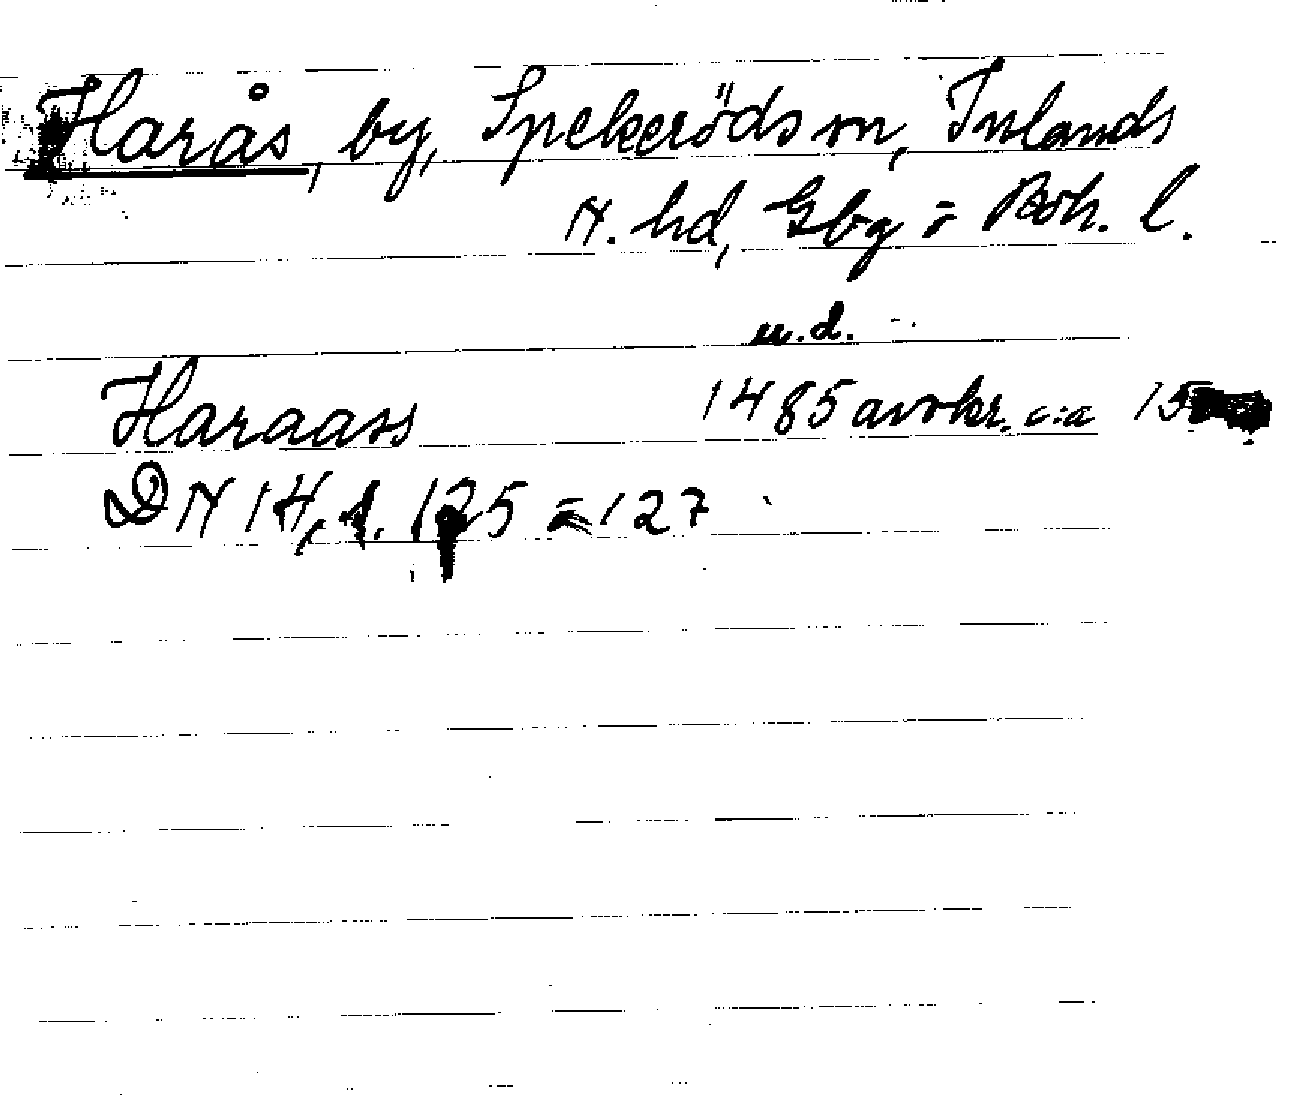 Harås, by, Spekeröds sn, Inlands
N. hd, Gbg o Boh. l.
u.d.
Haraass 1485 avskr. c:a 15
DN 14, 1. 125 = 127